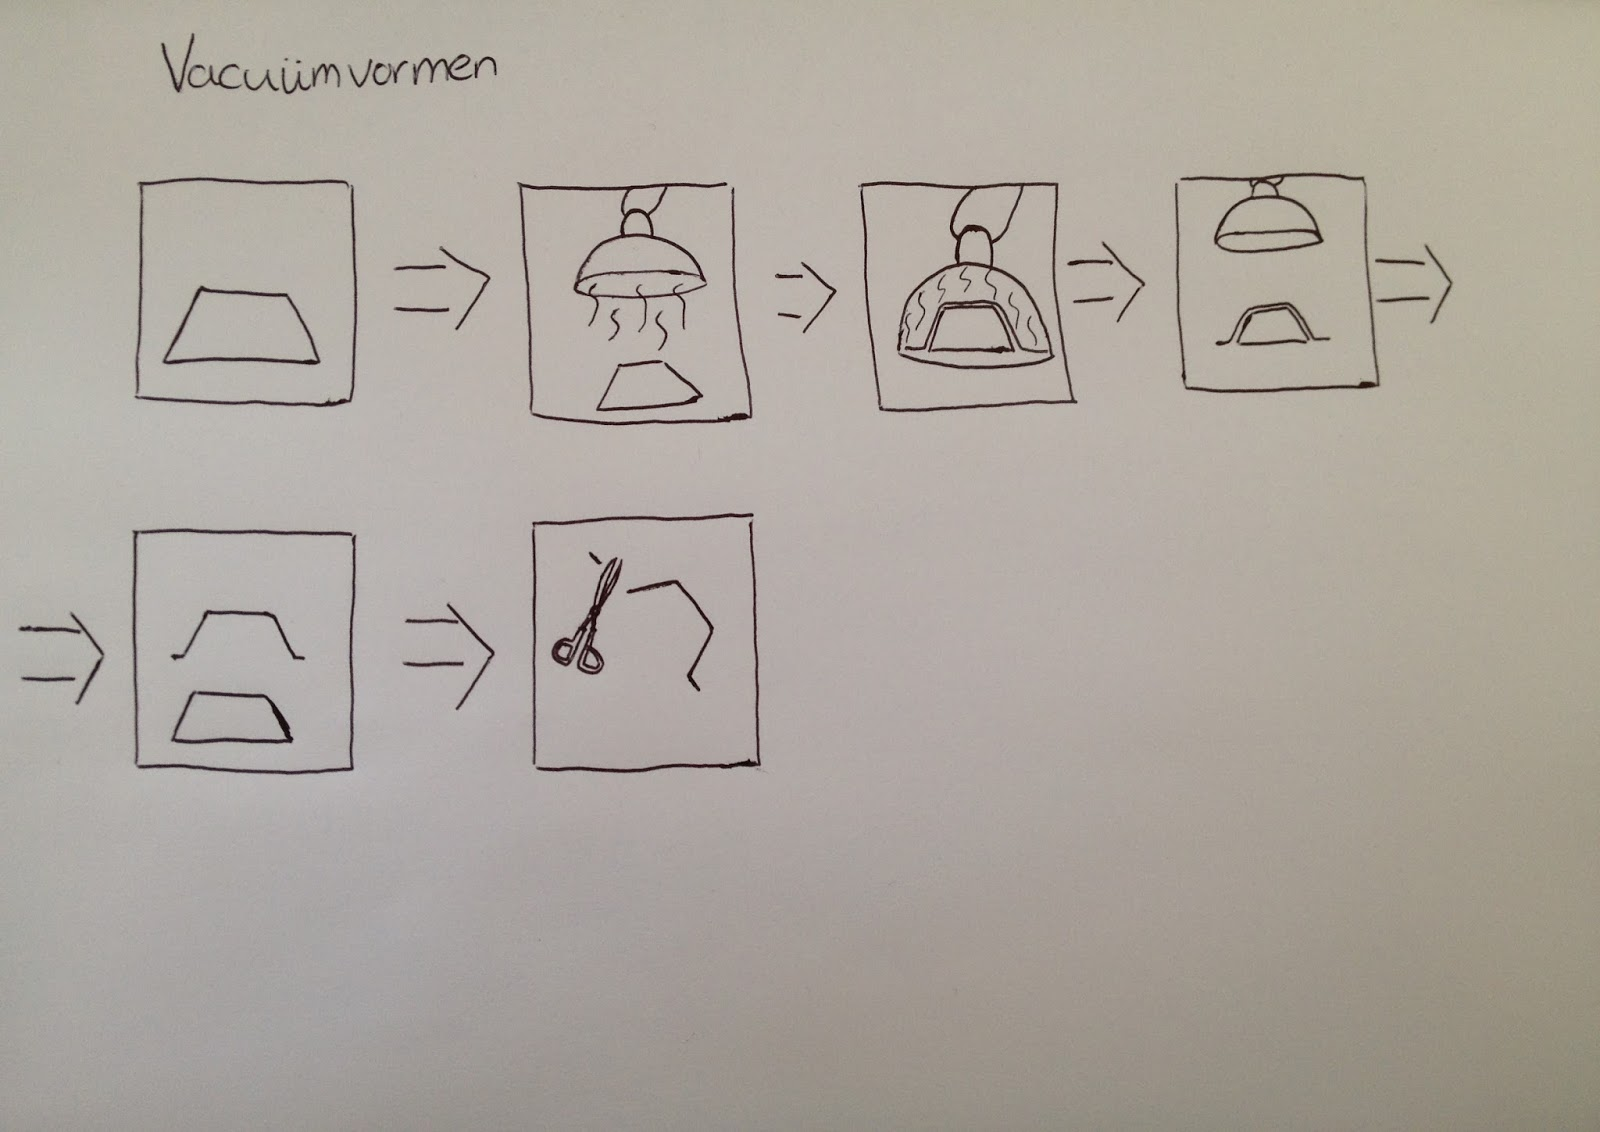 Vacuümvormen